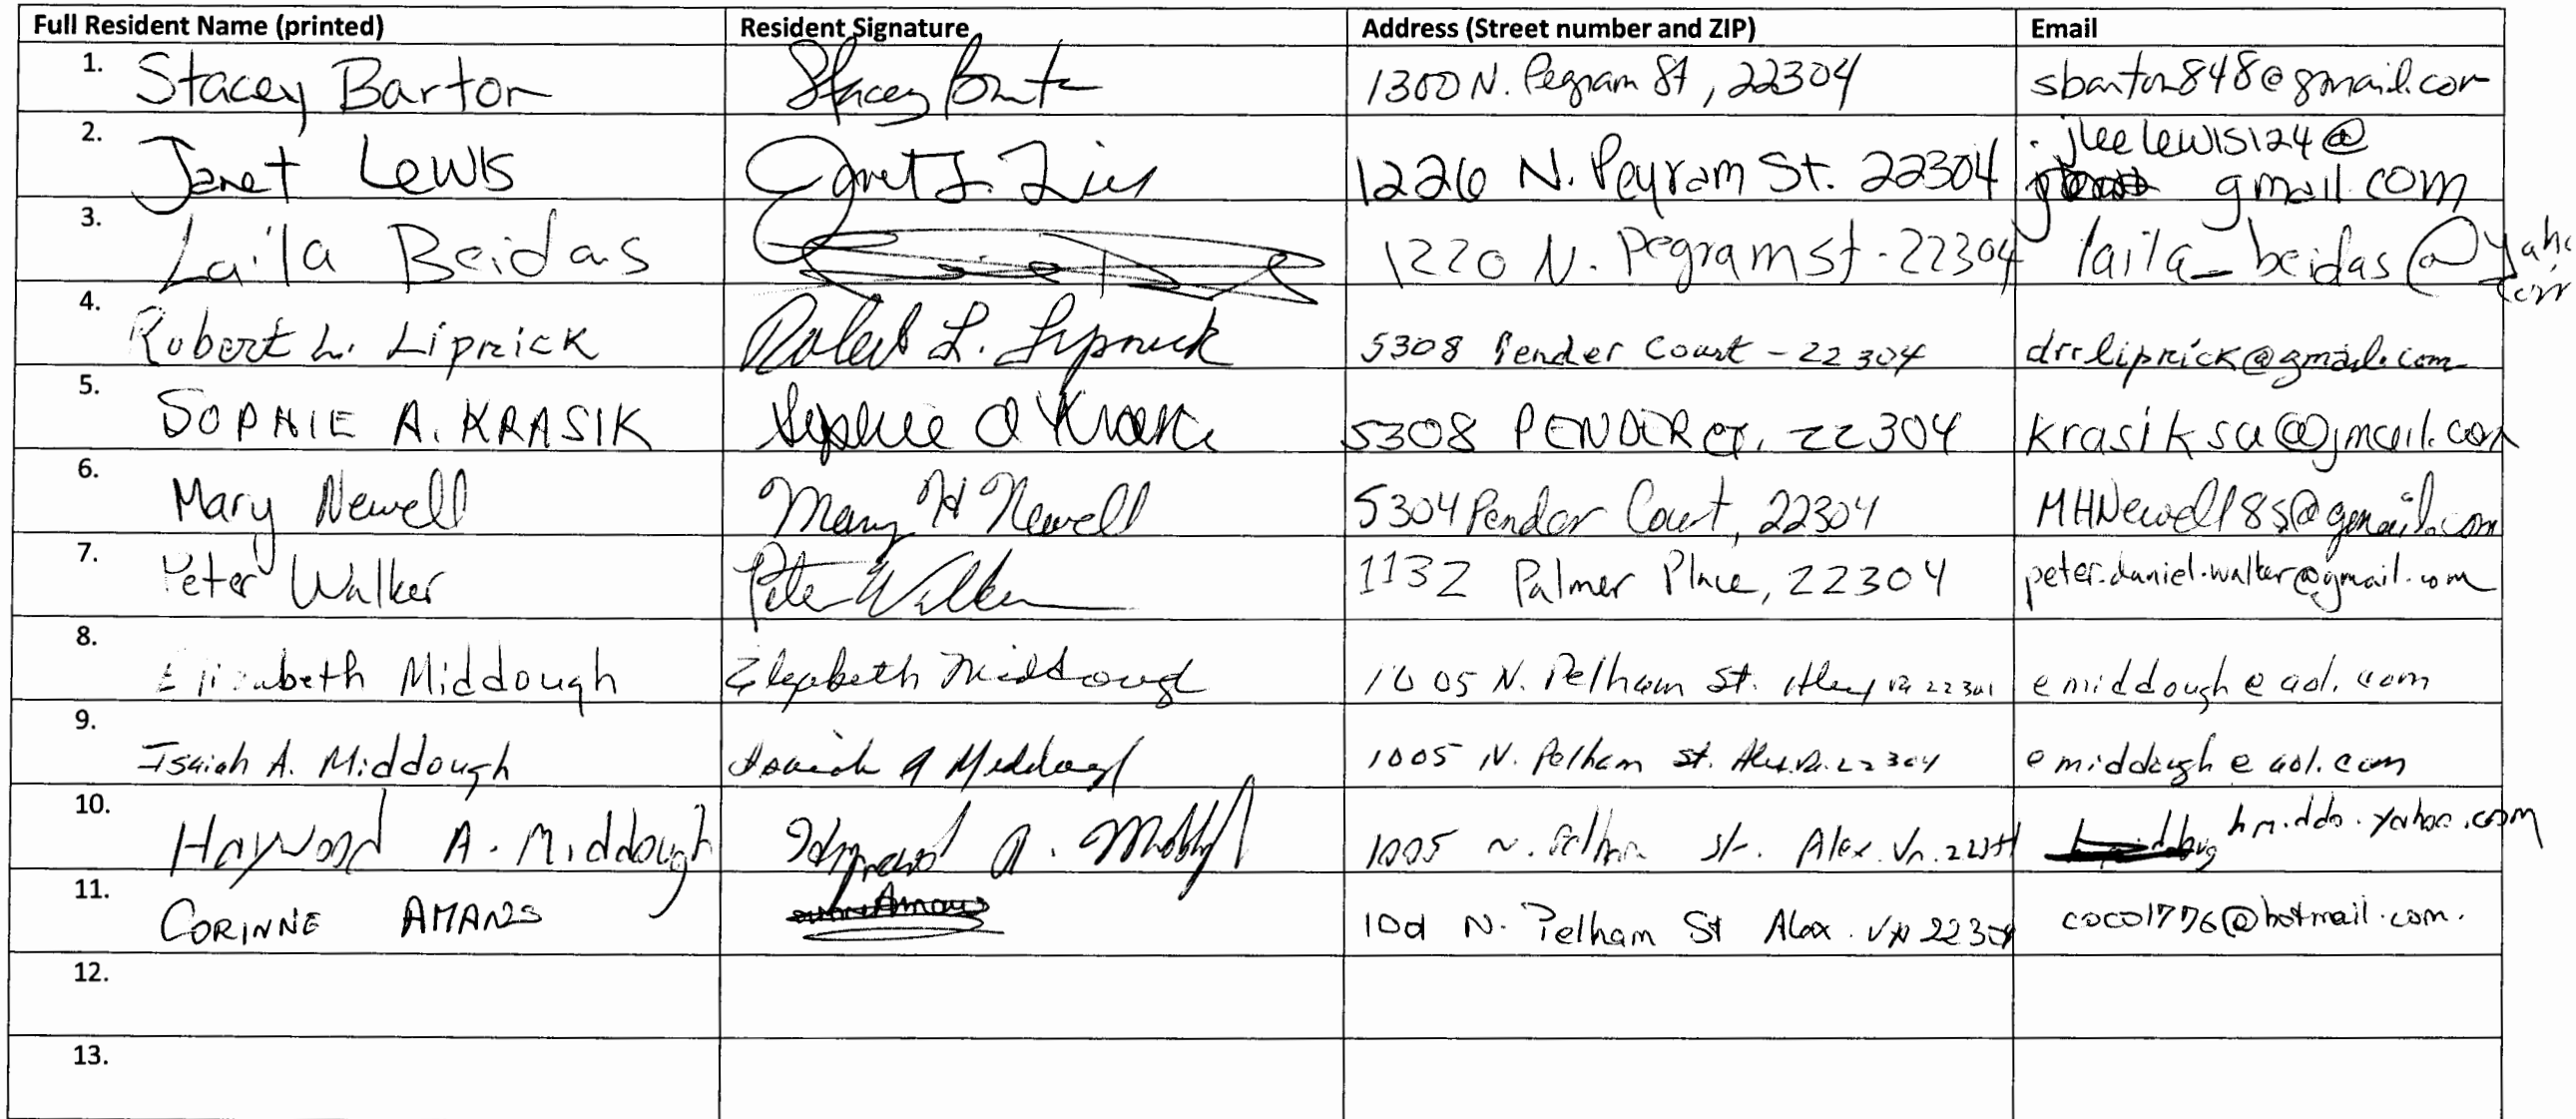 Full Resident Name (printed) Resident Signature Address (Street number and ZIP) Email
1. Stacey Barton Stacey Barton 1300 N. Pegram St, 22304 sbarton848@gmail.com
2. Janet Lewis Janet L. 1226 N. Peyram St. 22304 jleelewis124@
gmail.com
3. Laila Beidas 1220 N. Pegram st - 22304 laila_beidas@
4. Robert L. Lipnick Robert L. Lipnick 5308 Pender Court - 22304 drrlipnick@gmail.com
5. SOPHIE A. KRASIK Sophie A Krasik 5308 PENDER CT. 22304 krasiksa@gmail.com
6. Mary Newell Mary H Newell 5304 Pender Court, 22304 MHNewell85@gmail.com
7. Peter Walker Peter Walker 1132 Palmer Place, 22304 peter.daniel.walker@gmail.com
8. Elizabeth Middough Elizabeth Middough 1005 N. Pelham St. Va emiddough@aol.com
9. Isaiah A. Middough Isaiah A Middough 1005 N. Pelham st. Alex.Va. 22304 emiddough@aol.com
10. Haywood A. Middough Haywood A. 1005 N. Pelham St. Alex. Va. hmiddo.yahoo.com
11. CORINNE AMANS N. Pelham St Alex. VA 22304 coco1776@hotmail.com.
12.
13.